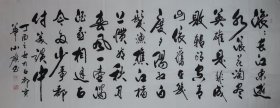 滚滚长江东逝
水浪花淘尽
英雄是非成
败转头空青
山依旧在几
度夕阳红白
发渔樵江渚
上惯看秋月
春风一壶浊
酒喜相逢古
今多少事都
付笑谈中
丁酉